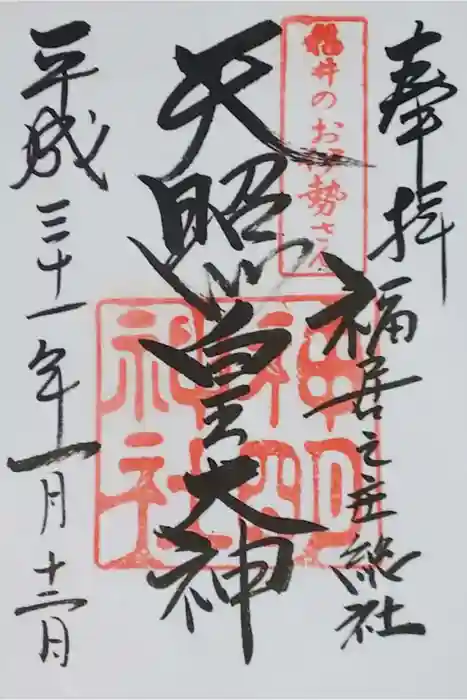 奉拝
福居之主総社
福井のお伊勢さん
天照皇大神
神明神社
平成三十一年一月十二日